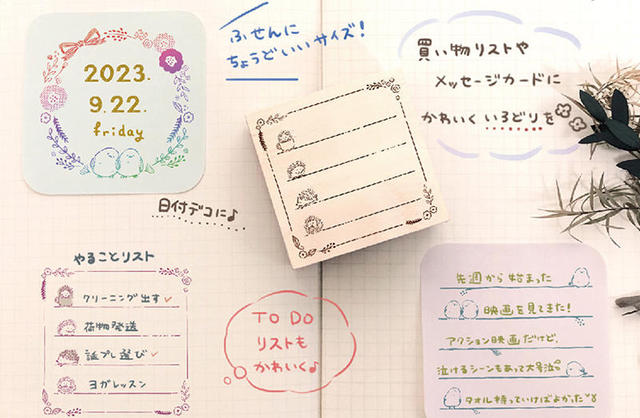 2023.
9.22.
friday
ふせんに
ちょうどいいサイズ！
買い物リストや
メッセージカードに
かわいくいろどりを
日付デコに♪
やることリスト
クリーニング出す✓
荷物発送
誕プレ選び✓
ヨガレッスン
TO DO
リストも
かわいく♪
先週から始まった
映画を見てきた！
アクション映画だけど、
泣けるシーンもあって大号泣
タオル持っていけばよかった